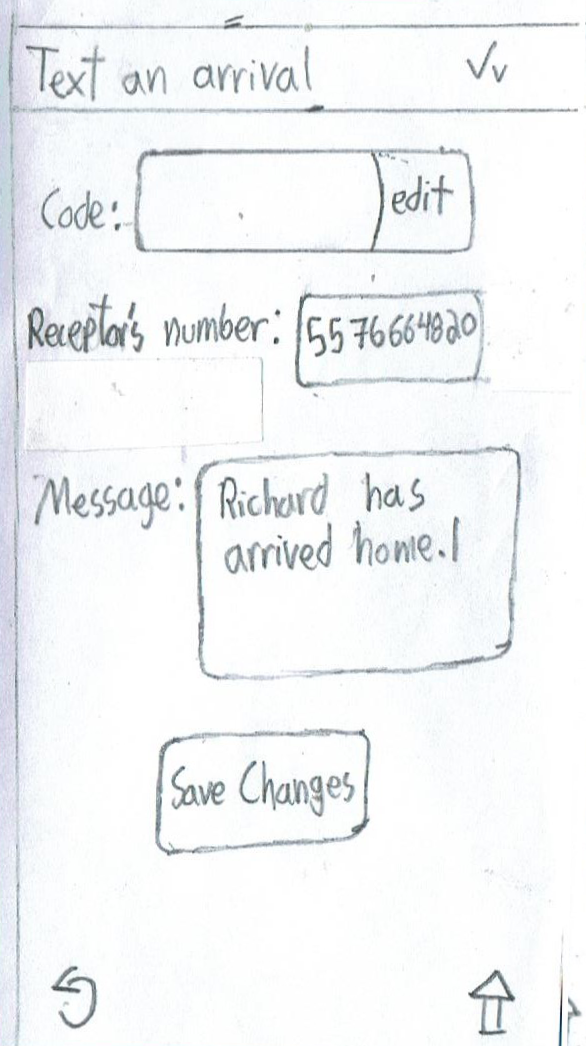 Text an arrival
Code:
edit
Receptor's number: 5576664820
Message: Richard has
arrived home.
Save Changes